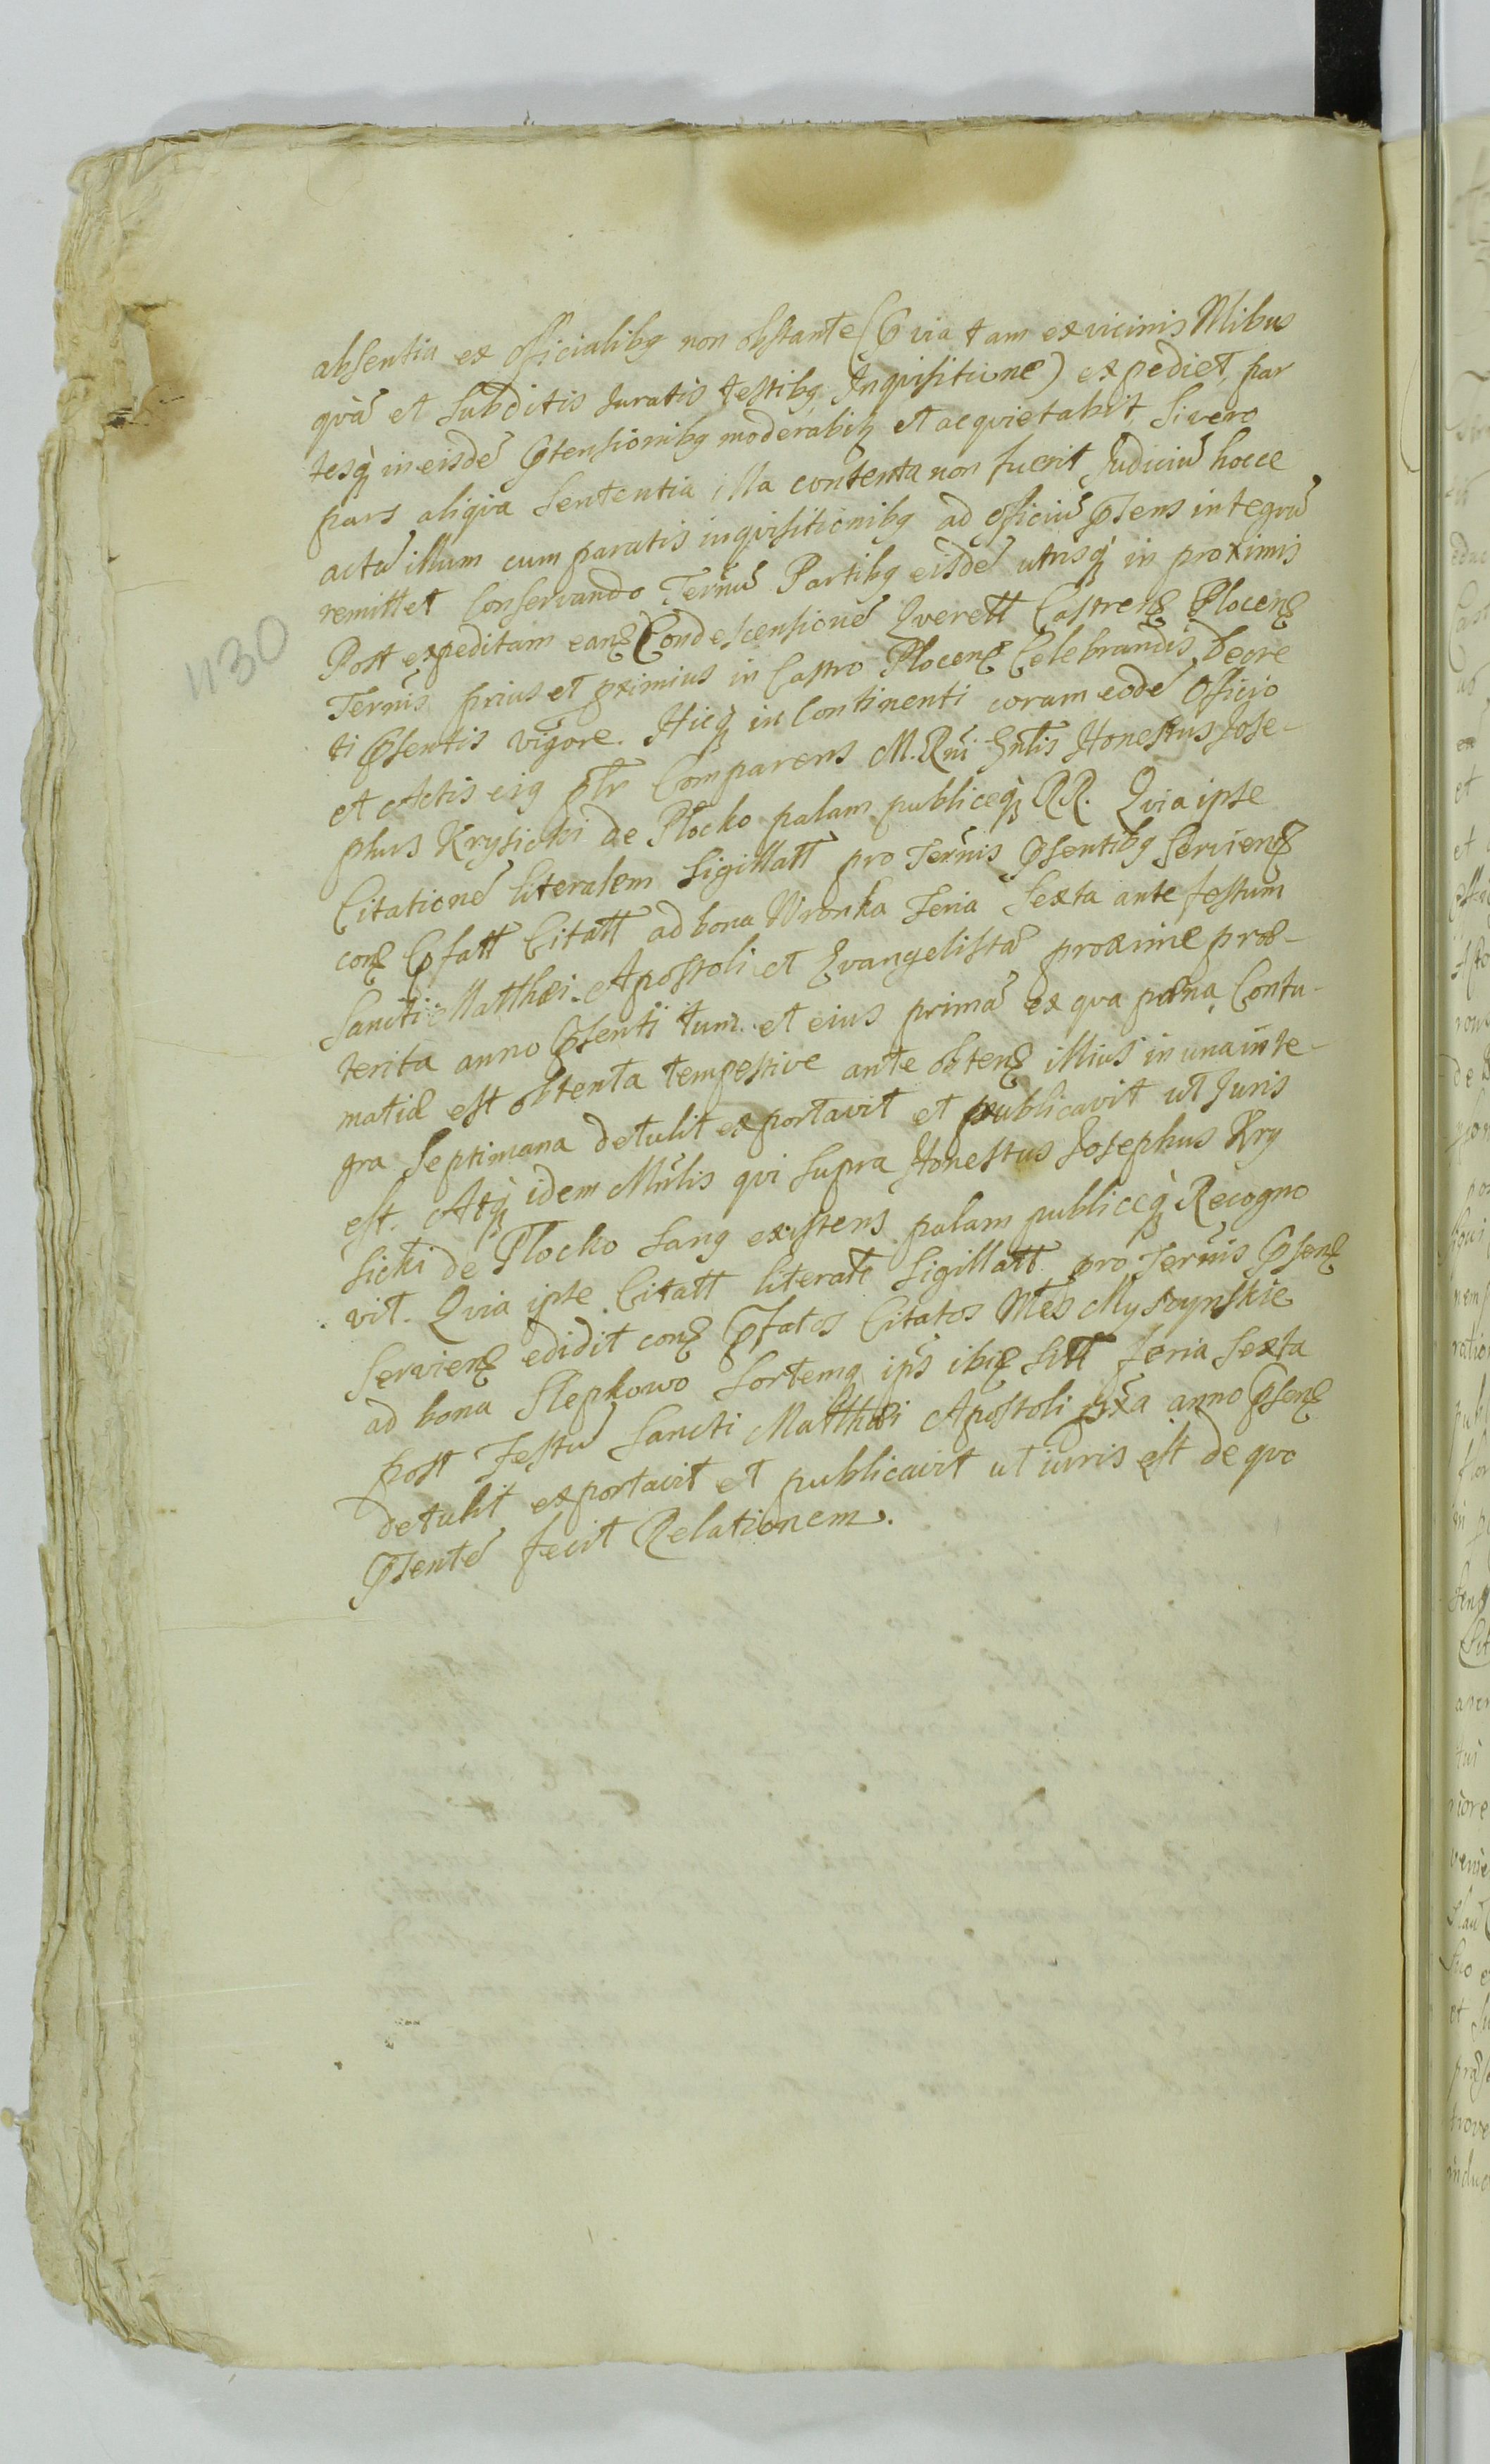 absentia ex officialibq non obstante (Quia tam ex vicinis Mlibus
qvā et subditis Juratis testibq Inquisitione) expediet, par
tesq in eisdē Ptensionibq moderabit et acquietabit, Si vero
pars aliqva Sententia illa contenta non fuerit Judiciū hocce
actū illum cum paratis inquisitionibq ad officiū Psens integrū
remittet Conservando Ternū Partibq eisdē utrisq in proximis
Post expeditam eanꝫ Condescensionē Qverell Castrenꝫ Plocenꝫ
Ternis prius et pximius in Castro Plocenꝫ Celebrandis Decre
ti Psentis vigore. Hicq in Continenti coram eodē Officio
et Actis eiq pltr Comparens M. Rni Gnlis Honestus Jose-
phus Krysicki de Plocko palam publiceq RR. Qvia ipse
Citationē literalem Sigillatt pro Ternis Psentibq Servienꝫ
conꝫ Pfatt Citatt ad bona Wronka Feria Sexta ante festum
Sancti Matthæi Apostoli et Evangelistæ proxime præ-
terita anno Psenti tum et eius primā ex qva pæna Contu-
matiæ est obtenta tempestive ante obtenꝫ illius in una inte-
gra Septimana detulit exportavit et publicavit ut Juris
est. Atq idem Mnlis qvi supra Honestus Josephus Kry
sicki de Plocko sanq existens palam publiceq Recogno
vit. Qvia ipse Citatt literatt Sigillatt pro Ternis Psenꝫ
Servienꝫ edidit conꝫ Pfatos Citatos Mles Mystynskie
ad bona Slepkowo Sortemq ips ibiꝫ Sitt Feria Sexta
post Festū Sancti Matthæi Apostoli pxa anno Psenꝫ
detulit exportavit et publicavit ut iuris est de qvo
Psentē fecit Relationem.
1130